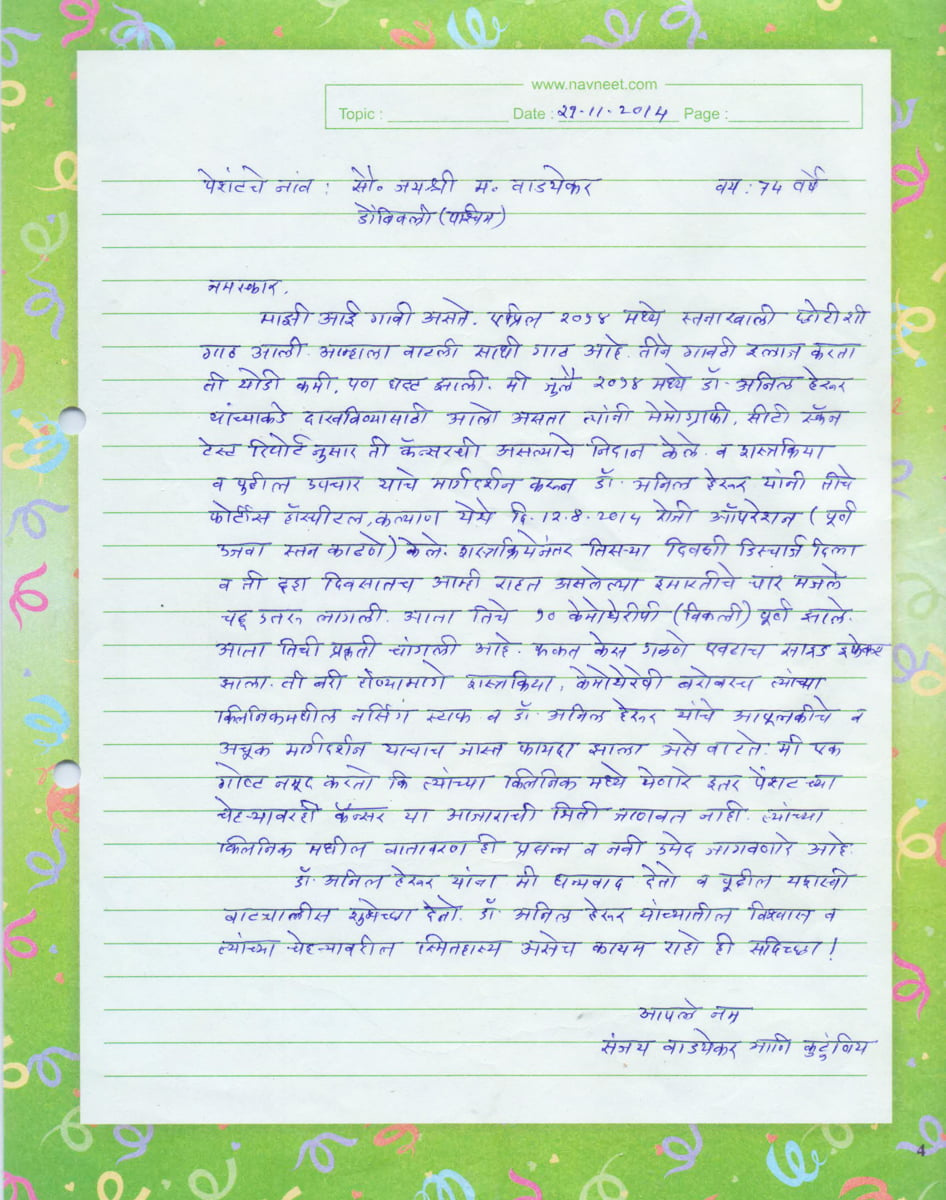 www.navneet.com
Topic : Date : 29-11-2014 Page :
पेशंटचे नांव : सौ. जयश्री म. वाडयेकर वय : 74 वर्षे
डोंबिवली (पश्चिम)
नमस्कार,
माझी आई गावी असते. एप्रिल २०१४ मध्ये स्तनाखाली छोटीशी
गाठ आली. आम्हाला वाटली साधी गाठ आहे. तीने गावठी इलाज करता
ती थोडी कमी, पण घट्ट झाली. मी जुलै २०१४ मध्ये डॉ. अनिल हेरूर
यांच्याकडे दाखविण्यासाठी आलो असता त्यांनी मेमोग्राफी, सीटी स्कॅन
टेस्ट रिपोर्टनुसार ती कॅन्सरची असल्याचे निदान केले. व शस्त्रक्रिया
व पुढील उपचार याचे मार्गदर्शन करून डॉ. अनिल हेरूर यांनी तीचे
फोर्टीस हॉस्पीटल, कल्याण येथे दि. 12.8.2014 रोजी ऑपरेशन (पूर्ण
उजवा स्तन काढणे) केले. शस्त्रक्रियेनंतर तिसऱ्या दिवशी डिस्चार्ज दिला
व ती दहा दिवसातच आम्ही राहत असलेल्या इमारतीचे चार मजले
चढू उतरू लागली. आता तिचे १० केमोथेरीपी (विकली) पूर्ण झाले.
आता तिची प्रकृती चांगली आहे. फक्त केस गळणे एवढाच साइड इफेक्ट
झाला. ती बरी होण्यामागे शस्त्रक्रिया, केमोथेरेपी बरोबरच त्यांच्या
क्लिनिकमधील नर्सिंग स्टाफ व डॉ. अनिल हेरूर यांचे आपुलकीचे व
अचूक मार्गदर्शन याचाच जास्त फायदा झाला असे वाटते. मी एक
गोष्ट नमूद करतो कि त्यांच्या क्लिनिक मध्ये येणारे इतर पेंशटच्या
चेहऱ्यावरही कॅन्सर या आजाराची भिती जाणवत नाही. त्यांच्या
क्लिनिक मधील वातावरण ही प्रसन्न व नवी उमेद जागवणारे आहे.
डॉ. अनिल हेरूर यांना मी धन्यवाद देतो व पूढील यशस्वी
वाटचालीस शुभेच्छा देतो. डॉ. अनिल हेरूर यांच्यातील विश्वास व
त्यांच्या चेहऱ्यावरील स्मितहास्य असेच कायम राहो ही सदिच्छा!
आपले नम्र
संजय वाडयेकर आणि कुटुंबिय
4